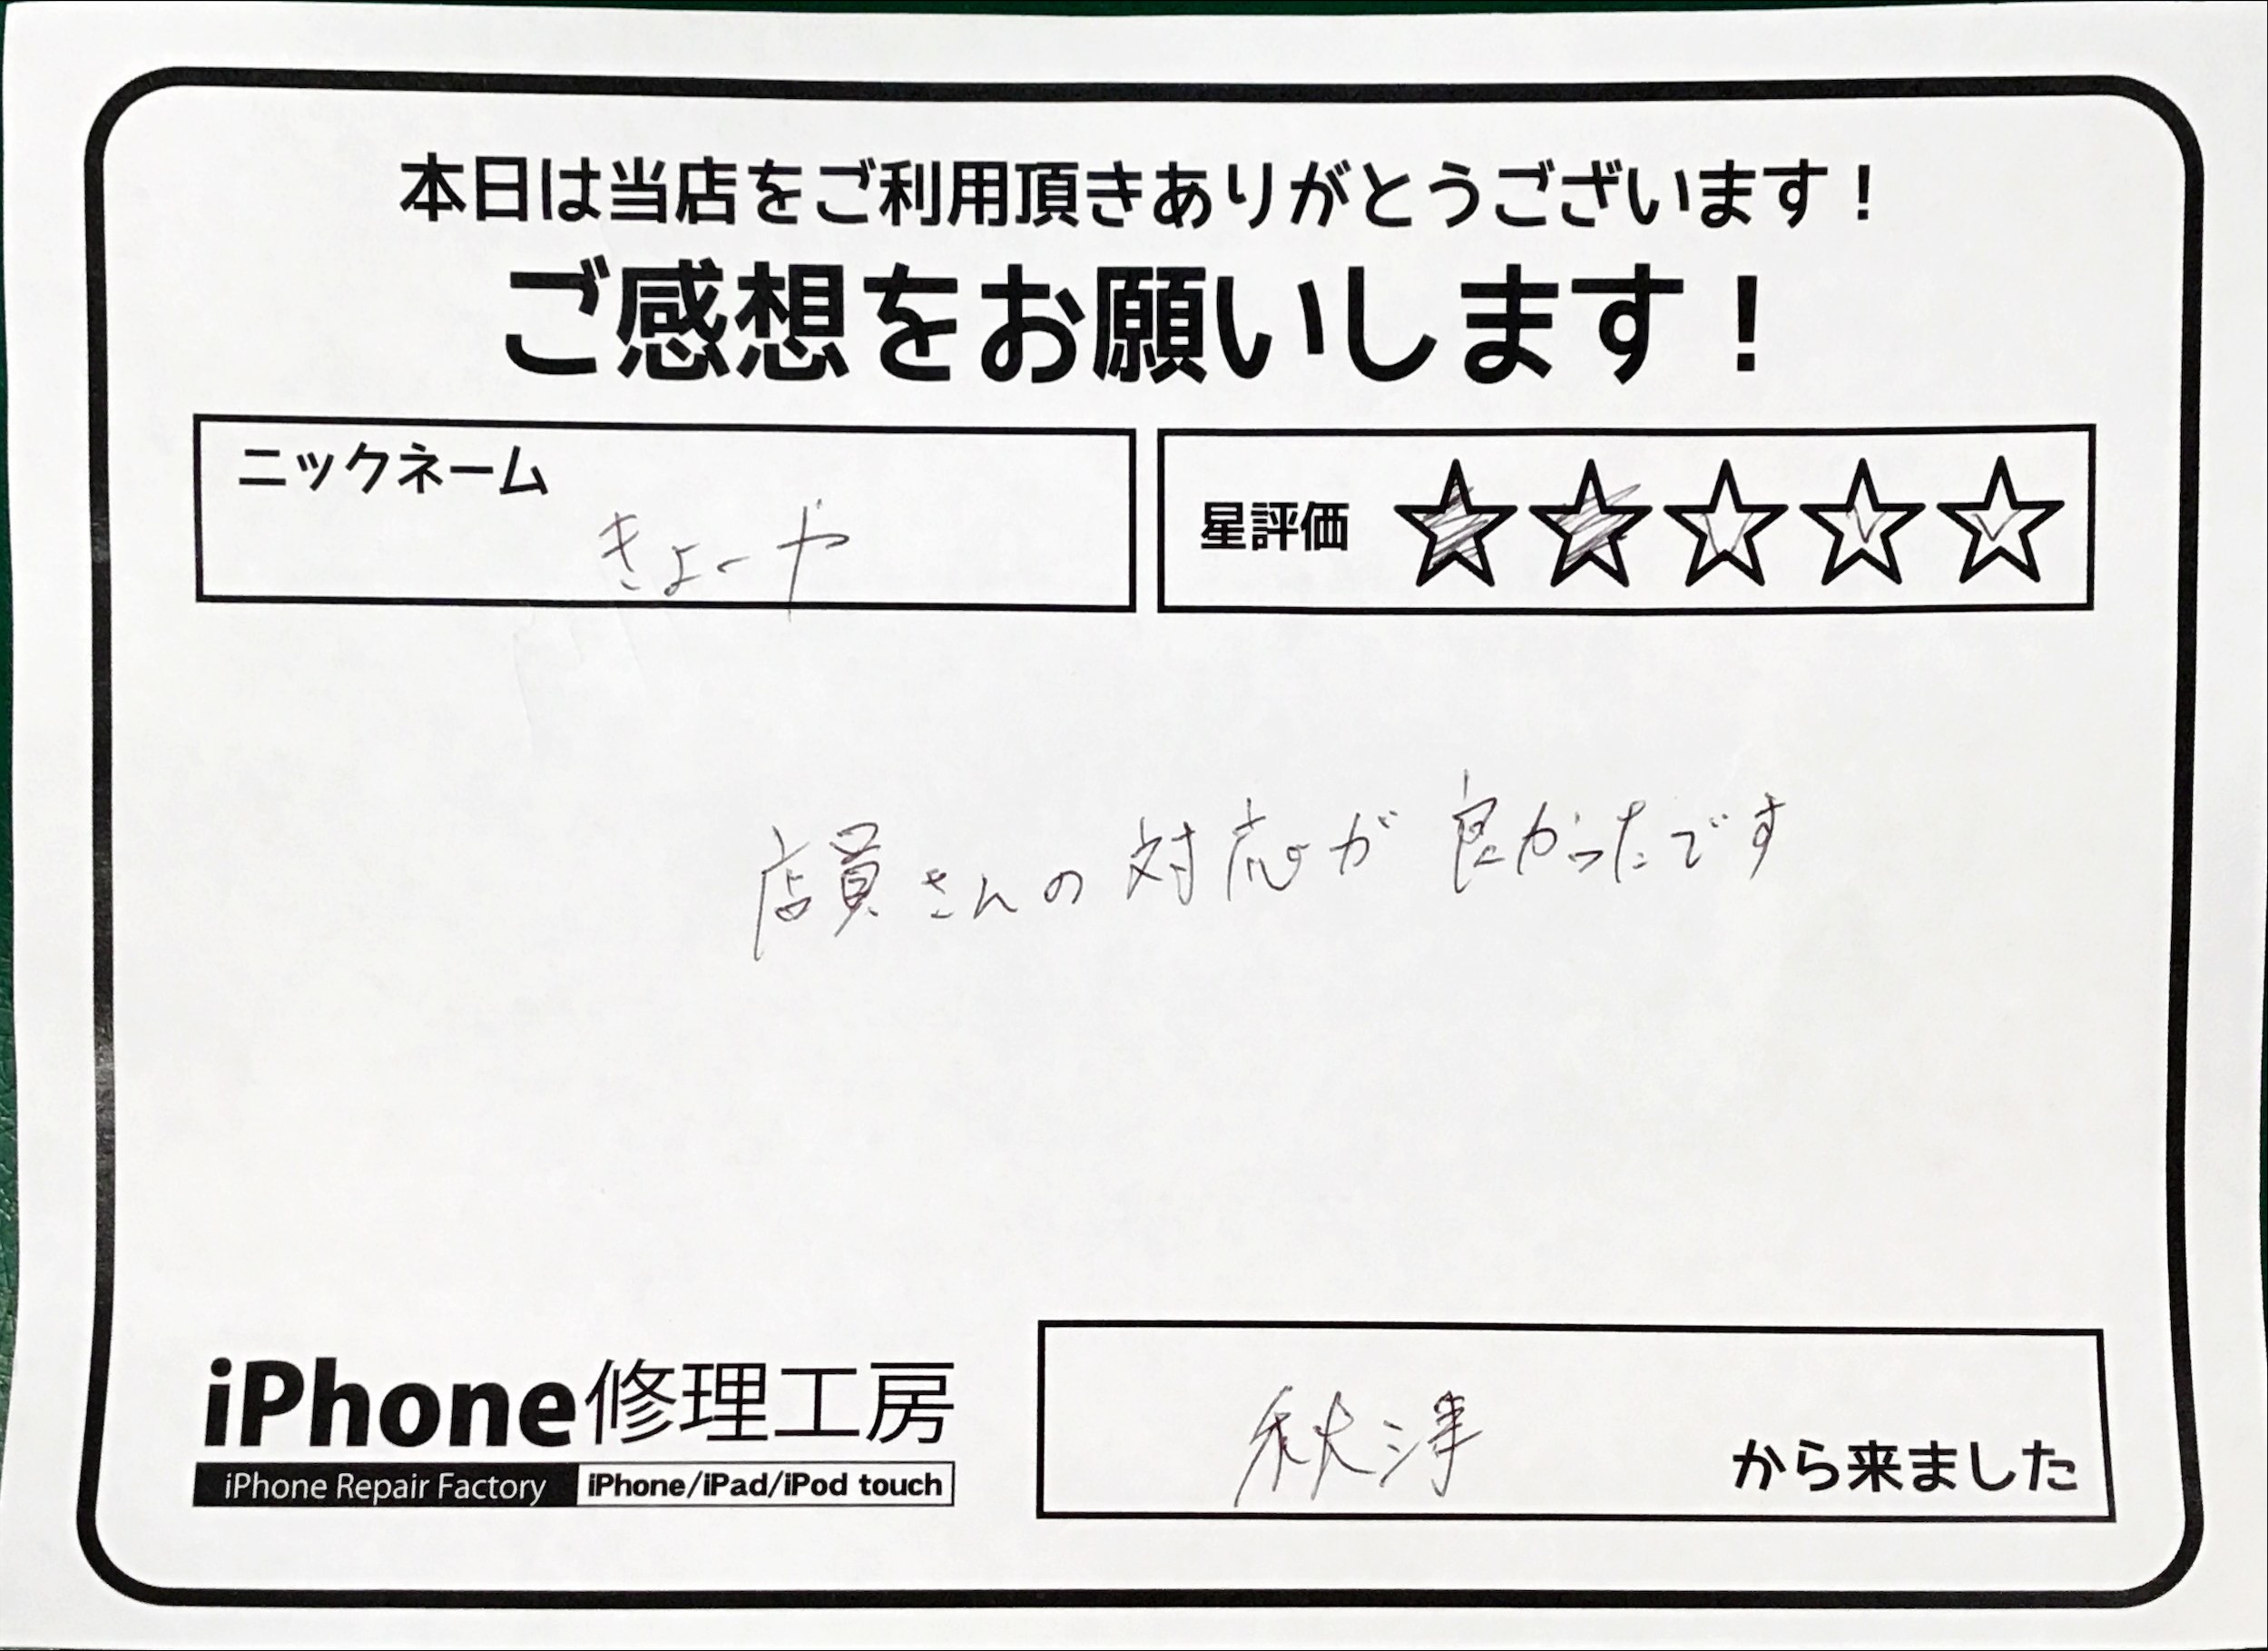 本日は当店をご利用頂きありがとうございます！
ご感想をお願いします！
ニックネーム
きょーや
星評価 ☆☆☆☆☆
店員さんの対応が良かったです
iPhone修理工房
iPhone Repair Factory iPhone/iPad/iPod touch
秋津 から来ました